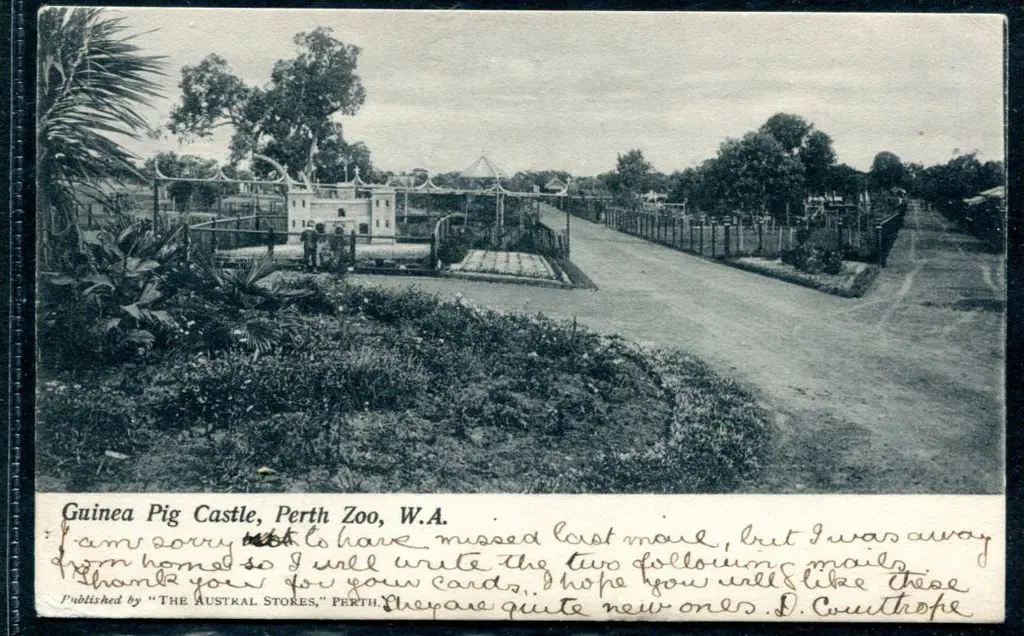 Guinea Pig Castle, Perth Zoo, W.A.
I am sorry to have missed last mail, but I was away
from home so I will write the two following mails.
Thank you for your cards, I hope you will like these
Published by "THE AUSTRAL STORES," PERTH. They are quite new ones. D.